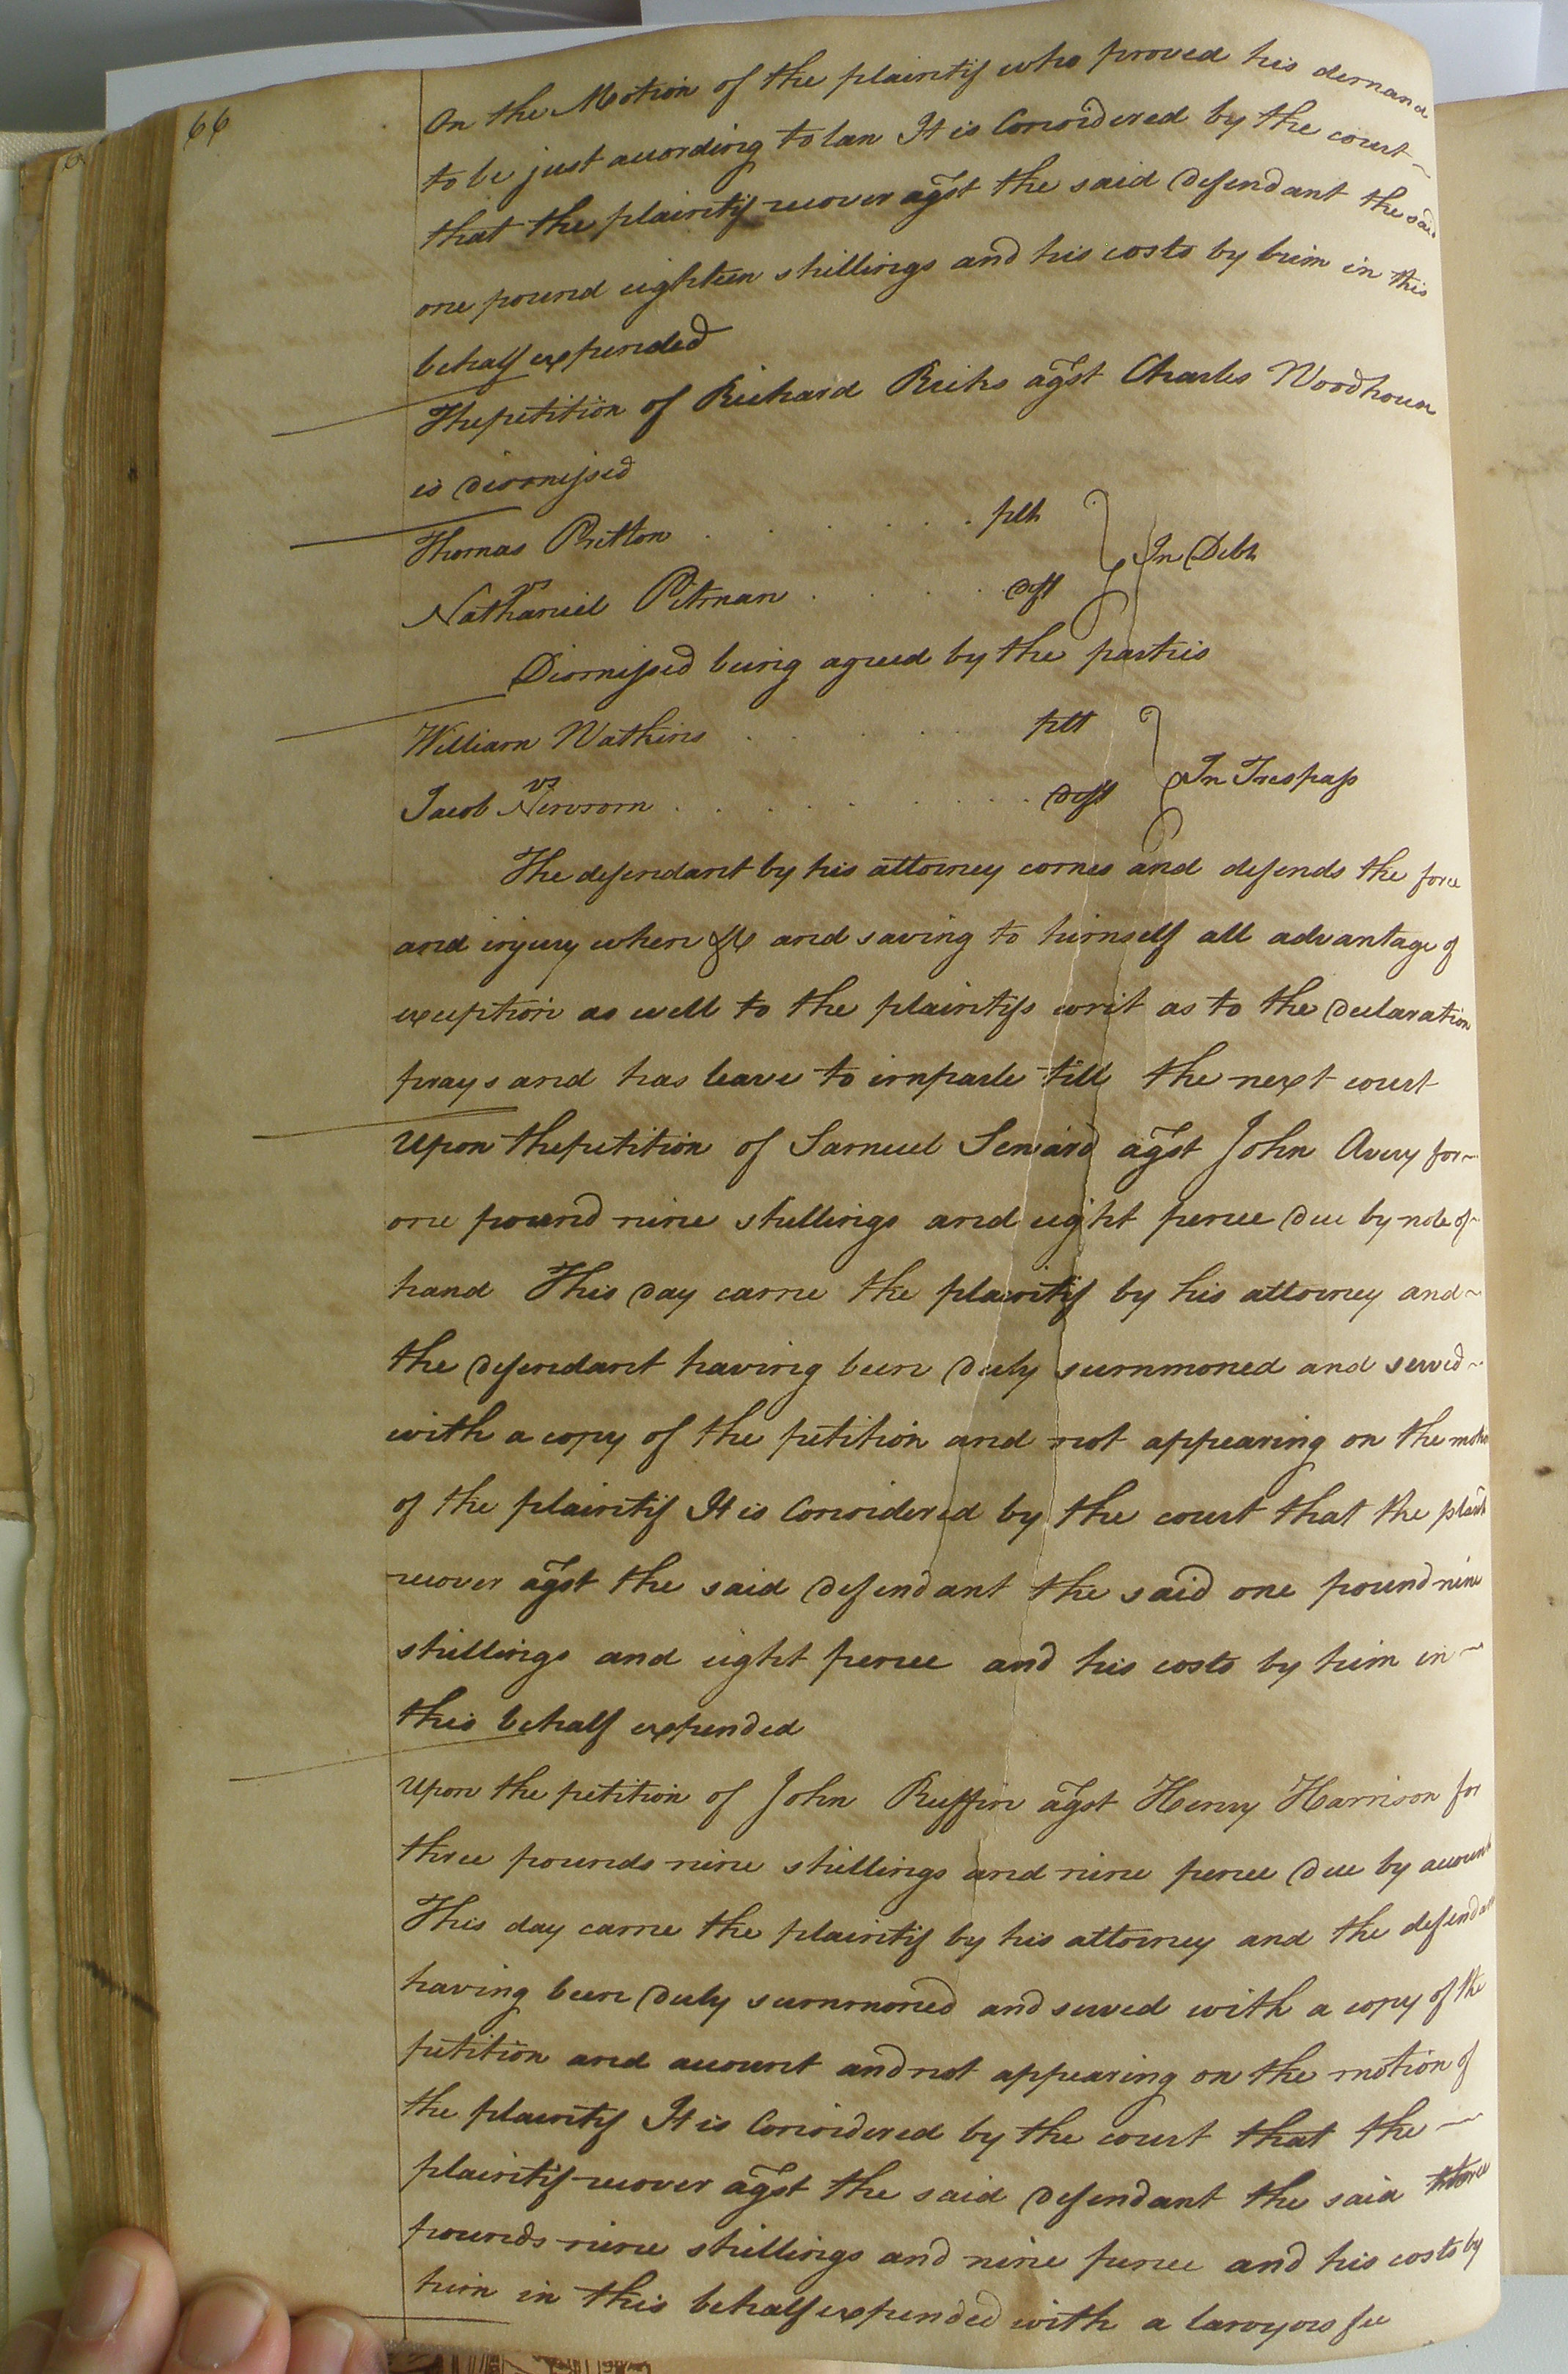 66
On the Motion of the plaintif who proved his demand
to be just according to law It is Considered by the court
that the plaintif recover agst the said defendant the said
one pound eighteen shillings and his costs by him in this
behalf expended
The petition of Richard Ricks agst Charles Woodhouse
is dismissed
Thomas Britton . . . . . . . plt
vs } In Debt
Nathaniel Pitman . . . . . deft
Dismissed being agreed by the parties
William Watkins . . . . . . plt
vs } In Trespass
Jacob Newsom . . . . . . . . . deft
The defendant by his attorney comes and defends the force
and injury when &c and saving to himself all advantage of
exception as well to the plaintifs writ as to the declaration
prays and has leave to imparle till the next court
Upon the petition of Samuel Seward agst John Avery for
one pound nine shillings and eight pence due by note of
hand This day came the plaintif by his attorney and
the defendant having been duly summoned and served
with a copy of the petition and not appearing on the motion
of the plaintif It is Considered by the court that the plaintif
recover agst the said defendant the said one pound nine
shillings and eight pence and his costs by him in
this behalf expended
Upon the petition of John Ruffin agst Henry Harrison for
three pounds nine shillings and nine pence due by account
This day came the plaintif by his attorney and the defendant
having been duly summoned and served with a copy of the
petition and account and not appearing on the motion of
the plaintif It is Considered by the court that the
plaintif recover agst the said defendant the said three
pounds nine shillings and nine pence and his costs by
him in this behalf expended with a lawyers fee